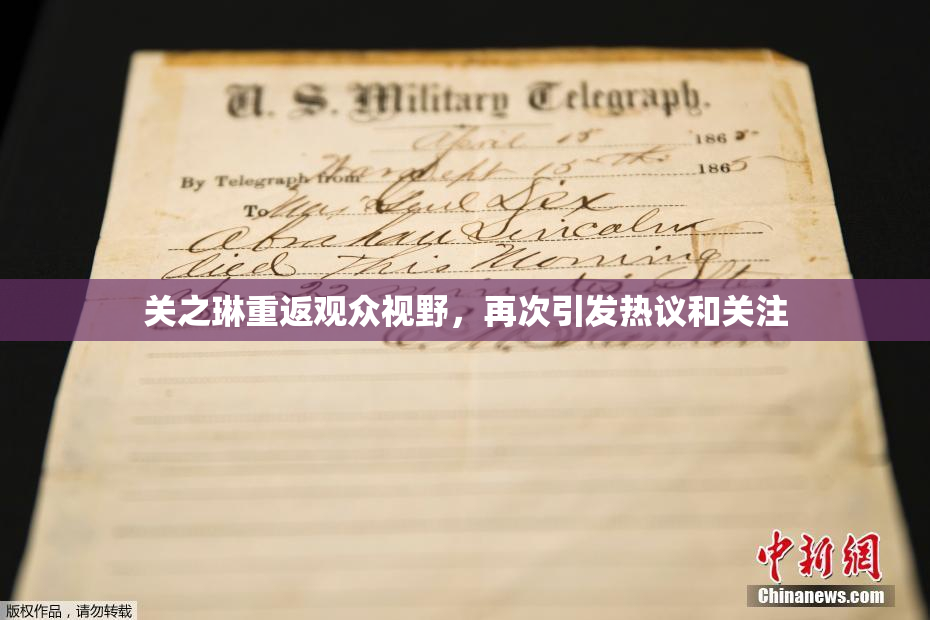 U. S. Military Telegraph.
April 15 1865
By Telegraph from War Dept 15th 1865
To Maj Genl Dix
Abraham Lincoln
died This Morning
at 22 minutes after
关之琳重返观众视野，再次引发热议和关注
E. M. Stanton
中新网
Chinanews.com
版权作品，请勿转载